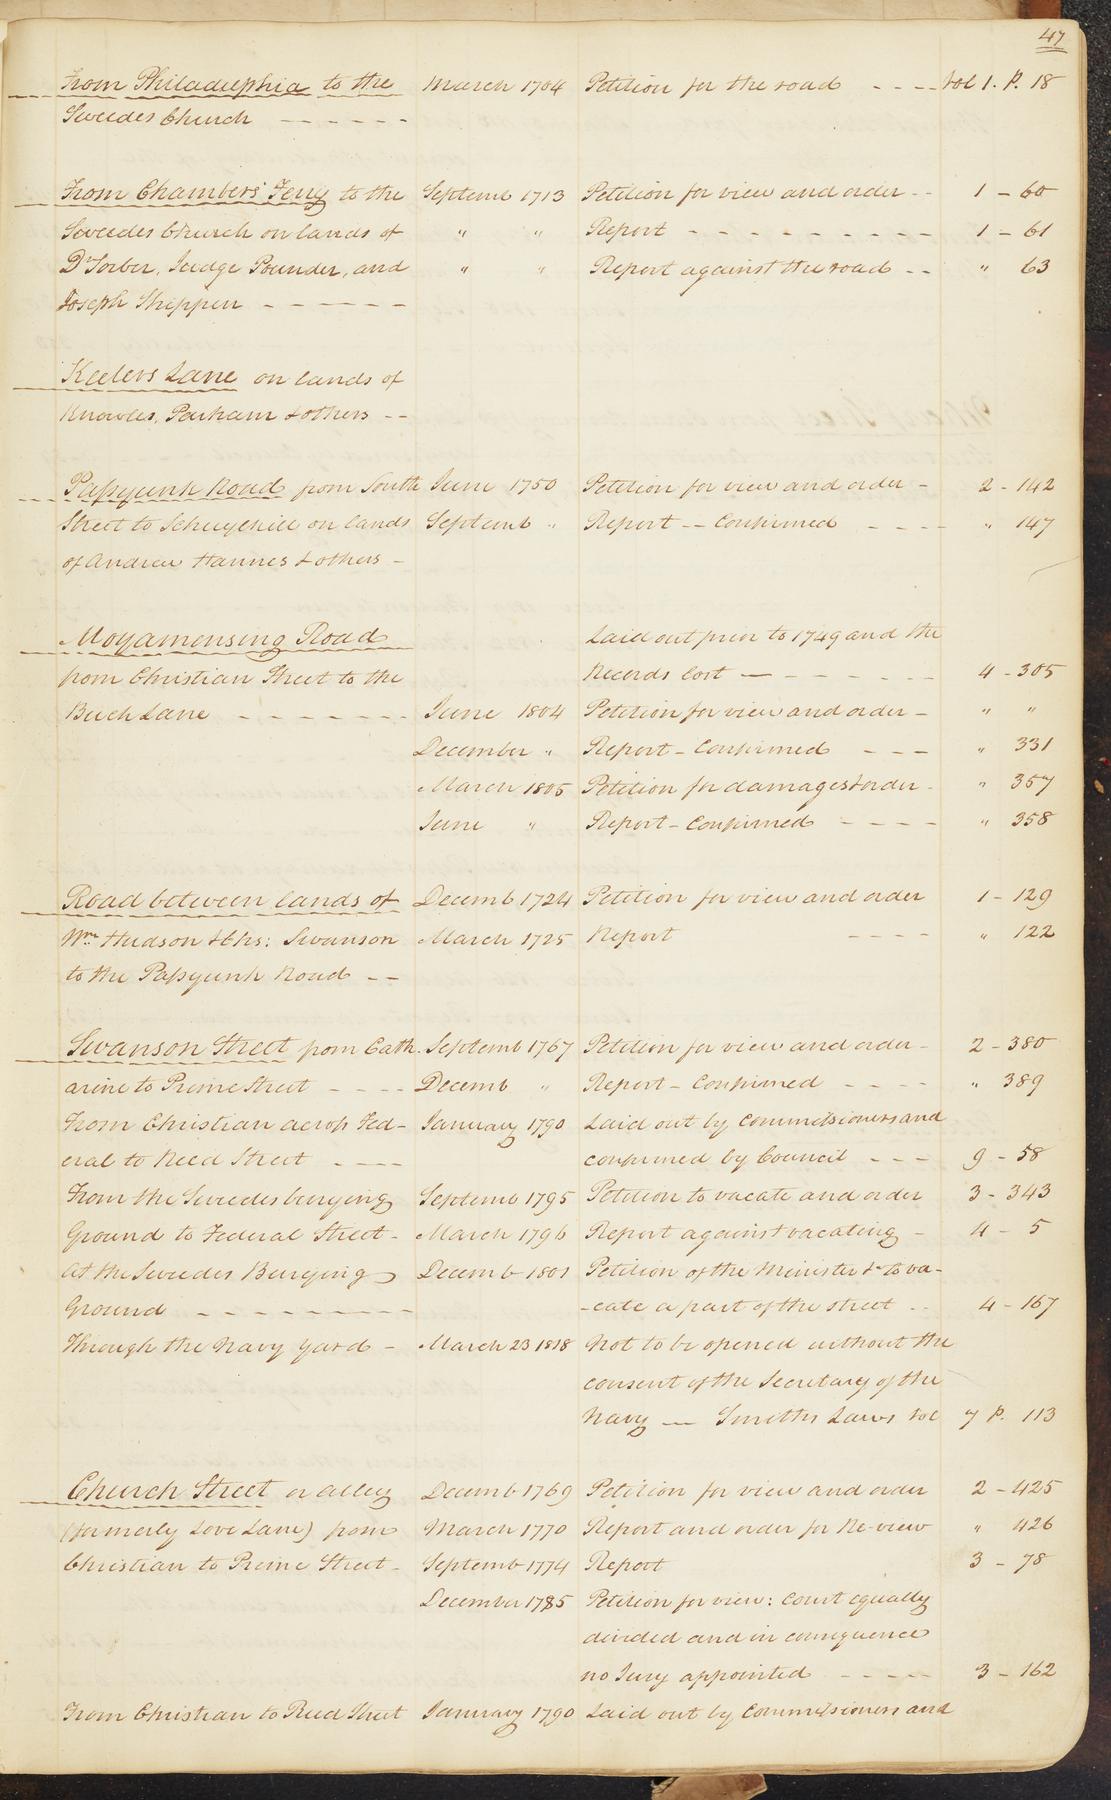 47
From Philadelphia to the March 1704 Petition for the road - - - - Vol 1. P. 18
Sweedes Church - - - - - -
From Chambers' Ferry to the Septemb 1713 Petition for view and order - - 1 - 60
Sweedes Church on lands of " " Report - - - - - - - - - 1 - 61
Dr Sorber, Judge Pounder, and " " Report against the road - - " 63
Joseph Shippen - - - - - -
Keelers Lane on lands of
Knowles, Parham & others - -
Passyunk Road from South June 1750 Petition for view and order - 2 - 142
Street to Schuylkill on lands Septemb " Report - - Confirmed - - - - " 147
of Andrew Hannes & others -
Moyamensing Road Laid out prior to 1749 and the
from Christian Street to the Records lost - - - - - - - 4 - 305
Buck Lane - - - - - - - June 1804 Petition for view and order - " "
December " Report - Confirmed - - - " 331
March 1805 Petition for damages & order - " 357
June " Report - Confirmed - - - - " 358
Road between lands of Decemb 1724 Petition for view and order 1 - 129
Wm Hudson & Chs: Swanson March 1725 Report - - - - " 122
to the Passyunk Road - -
Swanson Street from Cath- Septemb 1767 Petition for view and order - 2 - 380
arine to Prime Street - - - - Decemb " Report - Confirmed - - - - " 389
From Christian across Fed- January 1790 Laid out by Commissioners and
eral to Reed Street - - - - confirmed by Council - - - 9 - 58
From the Sweedes burying Septemb 1795 Petition to vacate and order 3 - 343
Ground to Federal Street - March 1796 Report against vacating - 4 - 5
At the Sweedes Burying Decemb 1801 Petition of the Minister &c to va-
Ground - - - - - - - - - -cate a part of the street - - 4 - 167
Through the Navy Yard - March 23 1818 Not to be opened without the
consent of the Secretary of the
Navy -- Smiths Laws Vol 7 P. 113
Church Street or alley Decemb 1769 Petition for view and order 2 - 425
(formerly Love Lane) from March 1770 Report and order for Re-view " 426
Christian to Prime Street - Septemb 1774 Report 3 - 78
December 1785 Petition for view: Court equally
divided and in consequence
no Jury appointed - - - - - 3 - 162
From Christian to Reed Street January 1790 Laid out by Commissioners and